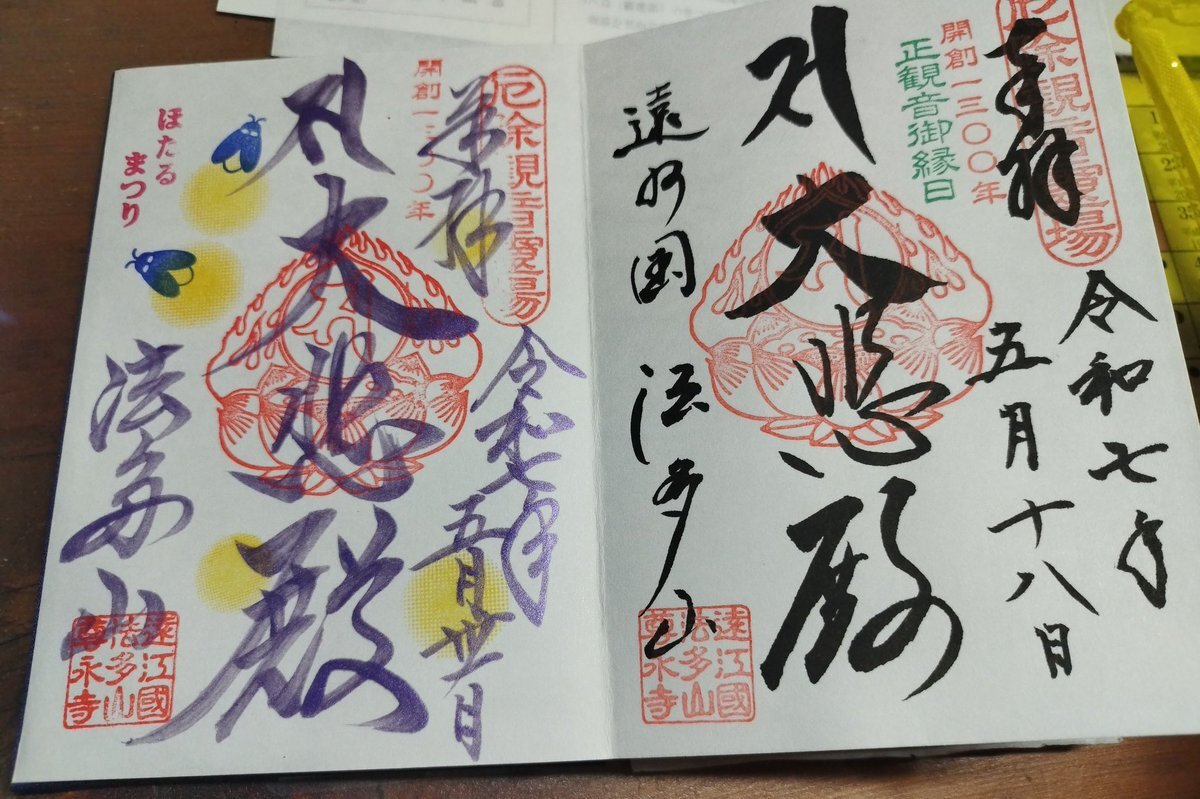 厄除観音霊場
奉拝
令和七年
五月十八日
開創一三〇〇年
正観音御縁日
大悲殿
遠州国 法多山
遠江國
法多山
尊永寺
厄除観音霊場
奉拝
令和七年
五月卅一日
開創一三〇〇年
大悲殿
ほたる
まつり
法多山
遠江國
法多山
尊永寺